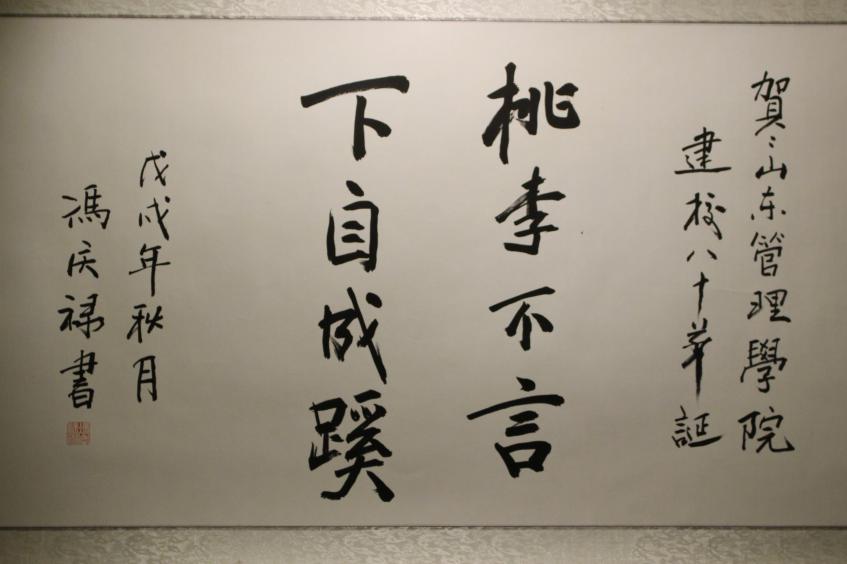 賀山东管理學院
建校八十華誕
桃李不言
下自成蹊
戊戌年秋月
馮庆禄書